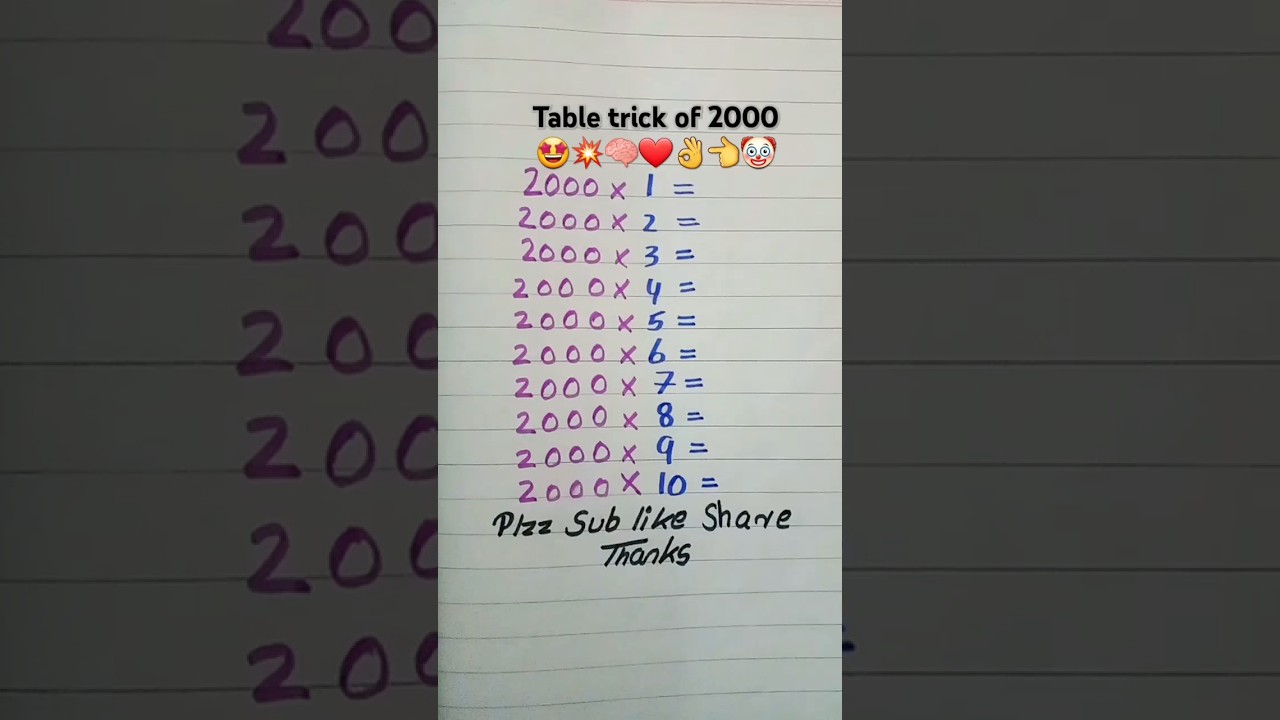 Table trick of 2000
🤩💥🧠❤️👌👈🤡
2000 × 1 =
2000 × 2 =
2000 × 3 =
2000 × 4 =
2000 × 5 =
2000 × 6 =
2000 × 7 =
2000 × 8 =
2000 × 9 =
2000 × 10 =
Plzz Sub like Share
Thanks